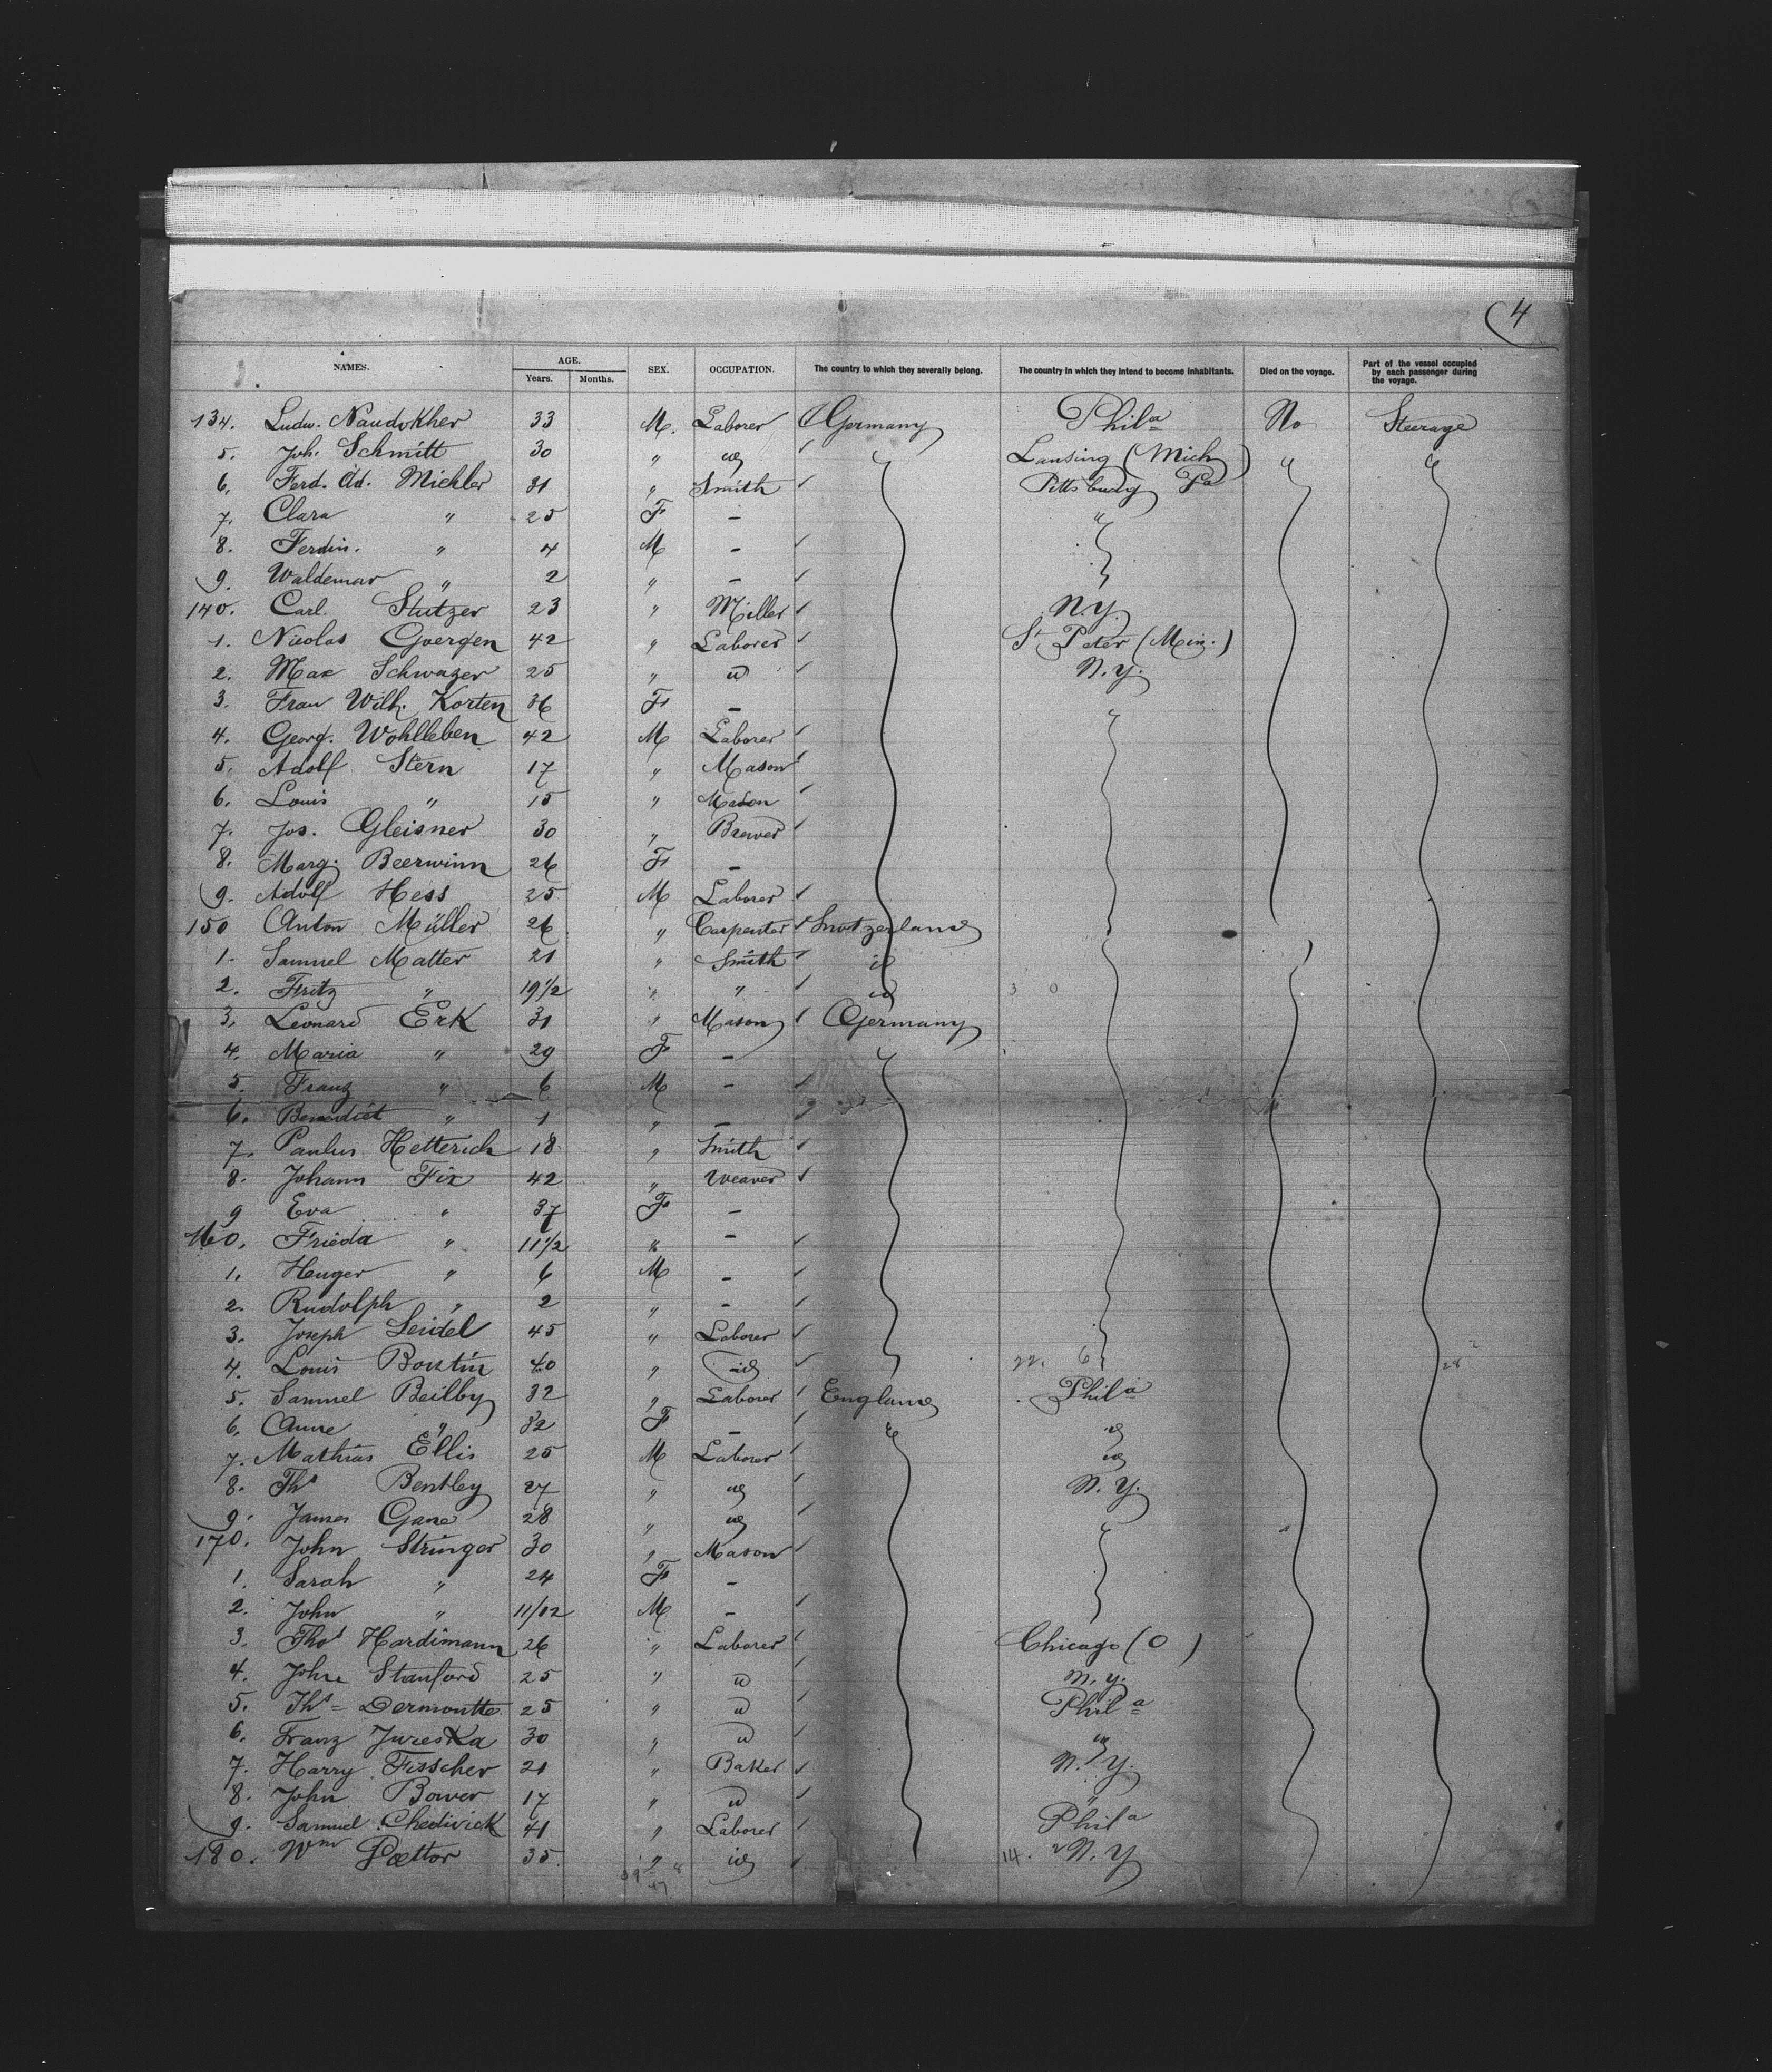 4
NAMES. AGE. SEX. OCCUPATION. The country to which they severally belong. The country in which they intend to become inhabitants. Died on the voyage. Part of the vessel occupied by each passenger during the voyage.
Years. Months.
134. Ludw. Naudokher 33 M. Laborer Germany Phila No Steerage
5. Joh. Schmitt 30 " id Lansing (Mich) "
6. Ferd. Ad. Michler 31 " Smith Pittsburg Pa
7. Clara " 25 F - "
8. Ferdin. " 4 M -
9. Waldemar " 2 " -
140. Carl Stutzer 23 " Miller N.Y.
1. Nicolas Goergen 42 " Laborer St Peter (Min.)
2. Max Schwazer 25 " id N.Y.
3. Frau Wilh. Korten 36 F -
4. Georg. Wohlleben 42 M Laborer
5. Adolf Stern 17 " Mason
6. Louis " 15 " Mason
7. Jos. Gleisner 30 " Brewer
8. Marg. Beerwinn 26 F -
9. Adolf Hess 25 M Laborer
150 Anton Müller 26 " Carpenter Switzerland
1. Samuel Matter 21 " Smith id
2. Fritz " 19 1/2 " " id 3 0
3. Leonard Erk 31 " Mason Germany
4. Maria " 29 F -
5. Franz " 6 M -
6. Benedict " 1 " -
7. Paulus Hetterich 18 " Smith
8. Johann Fix 42 " Weaver
9 Eva " 37 F -
160. Frieda " 11 1/2 " -
1. Heuger " 6 M -
2. Rudolph " 2 " -
3. Joseph Seidel 45 " Laborer
4. Louis Boutin 40 " id
5. Samuel Beilby 32 " Laborer England Phila
6. Anne " 32 F - id
7. Mathias Ellis 25 M Laborer id
8. Ths Bentley 27 " id N.Y.
9. James Gane 28 " id
170. John Stringer 30 " Mason
1. Sarah " 24 F -
2. John " 11/12 M -
3. Thos Hardimann 26 " Laborer Chicago (O)
4. John Stanford 25 " id N.Y.
5. Ths Dermoutte 25 " id Phila
6. Franz Jureska 30 " id id
7. Harry Fisscher 21 " Baker N.Y.
8. John Bower 17 " id "
9. Samuel Chedwick 41 " Laborer Phila
180. Wm Pættor 35. " id 14. N.Y